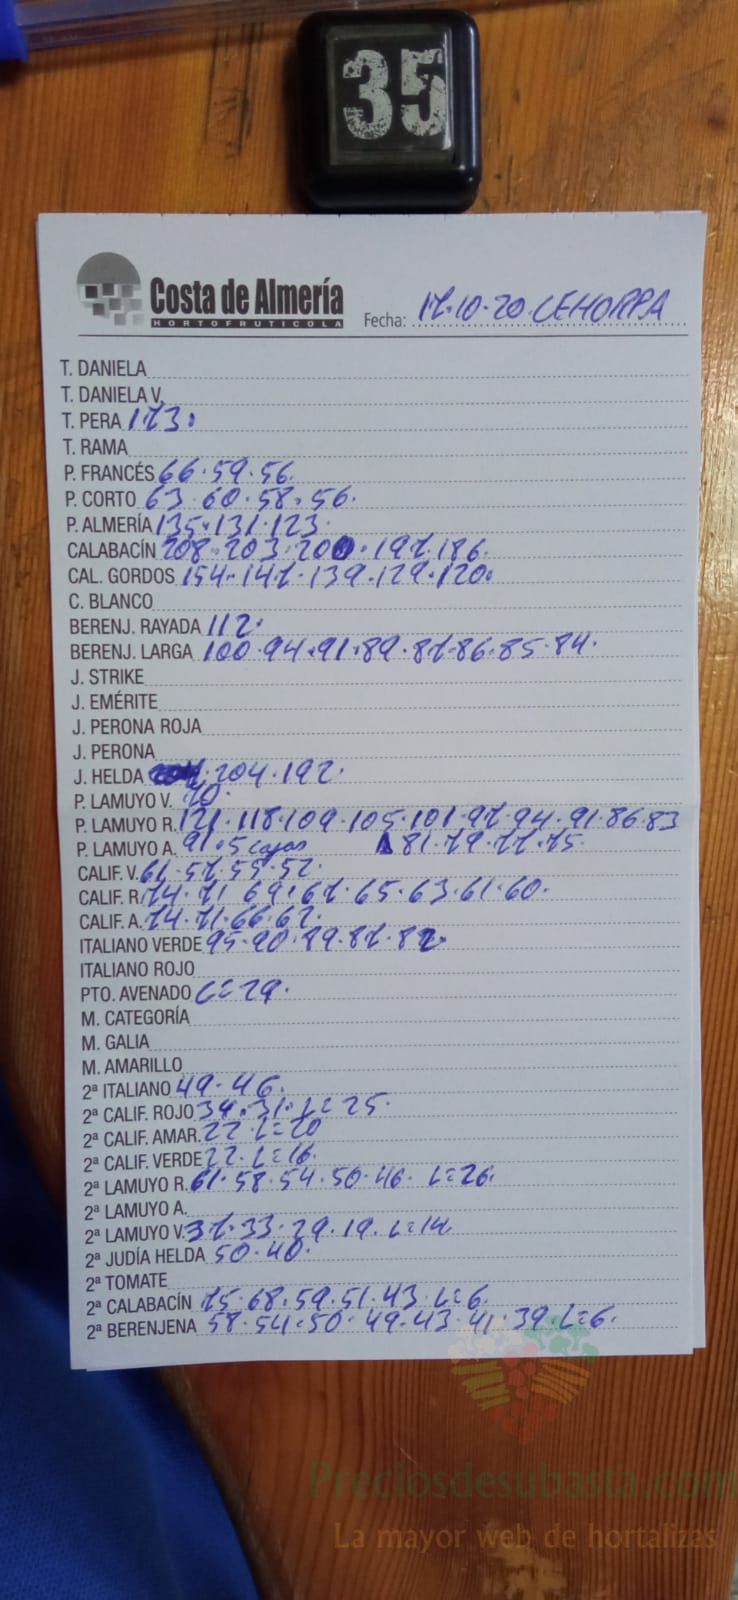 35
Costa de Almería
HORTOFRUTICOLA
Fecha: 17.10.20 CEHORPA
T. DANIELA
T. DANIELA V.
T. PERA 173.
T. RAMA
P. FRANCÉS 66.59.56.
P. CORTO 63.60.58.56.
P. ALMERÍA 135.131.123.
CALABACÍN 208.203.200.197.186.
CAL. GORDOS 154.147.139.129.120.
C. BLANCO
BERENJ. RAYADA 112.
BERENJ. LARGA 100.94.91.89.87.86.85.84.
J. STRIKE
J. EMÉRITE
J. PERONA ROJA
J. PERONA
J. HELDA 204.192.
P. LAMUYO V. 70.
P. LAMUYO R. 121.118.109.105.101.97.94.91.86.83
P. LAMUYO A. 91.5 cajas 81.79.77.75.
CALIF. V. 61.57.55.52.
CALIF. R. 74.71.69.67.65.63.61.60.
CALIF. A. 74.71.66.62.
ITALIANO VERDE 95.90.89.87.82.
ITALIANO ROJO
PTO. AVENADO L=29.
M. CATEGORÍA
M. GALIA
M. AMARILLO
2ª ITALIANO 49.46.
2ª CALIF. ROJO 34.31.L=25.
2ª CALIF. AMAR. 22 L=20
2ª CALIF. VERDE 22.L=16.
2ª LAMUYO R. 61.58.54.50.46. L=26.
2ª LAMUYO A.
2ª LAMUYO V. 37.33.29.19.L=14
2ª JUDÍA HELDA 50.40.
2ª TOMATE
2ª CALABACÍN 75.68.59.51.43.L=6.
2ª BERENJENA 58.54.50.49.43.41.39.L=6.
Preciosdesubasta.com
La mayor web de hortalizas